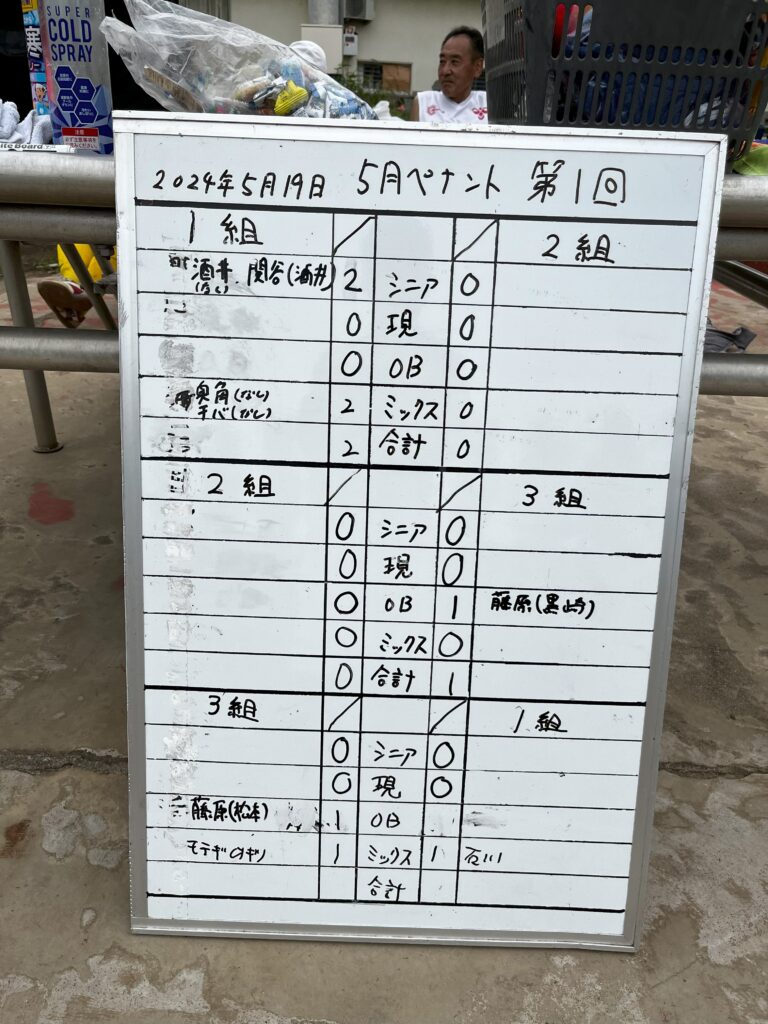 SUPER
COLD
SPRAY
注意
2024年5月19日 5月ペナント 第1回
1組 2組
酒井 関谷(酒井) 2 シニア 0
(なし)
0 現 0
0 OB 0
奥角(なし) 2 ミックス 0
チバ(なし)
2 合計 0
2組 3組
0 シニア 0
0 現 0
0 OB 1 藤原(黒崎)
0 ミックス 0
0 合計 1
3組 1組
0 シニア 0
0 現 0
藤原(松本) 1 OB
モテギ 1 ミックス 1 石川
合計